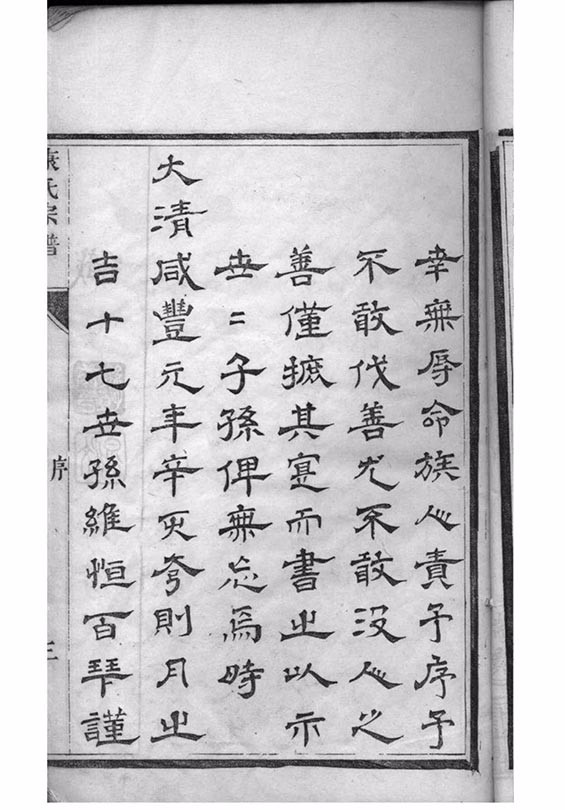 幸無辱命族人責予序予
不敢伐善尤不敢沒人之
善僅摭其寔而書之以示
世二子孫俾無忘焉時
大清咸豐元年辛亥夷則月之
吉十七世孫維恒百琴謹
氏宗譜
序
三